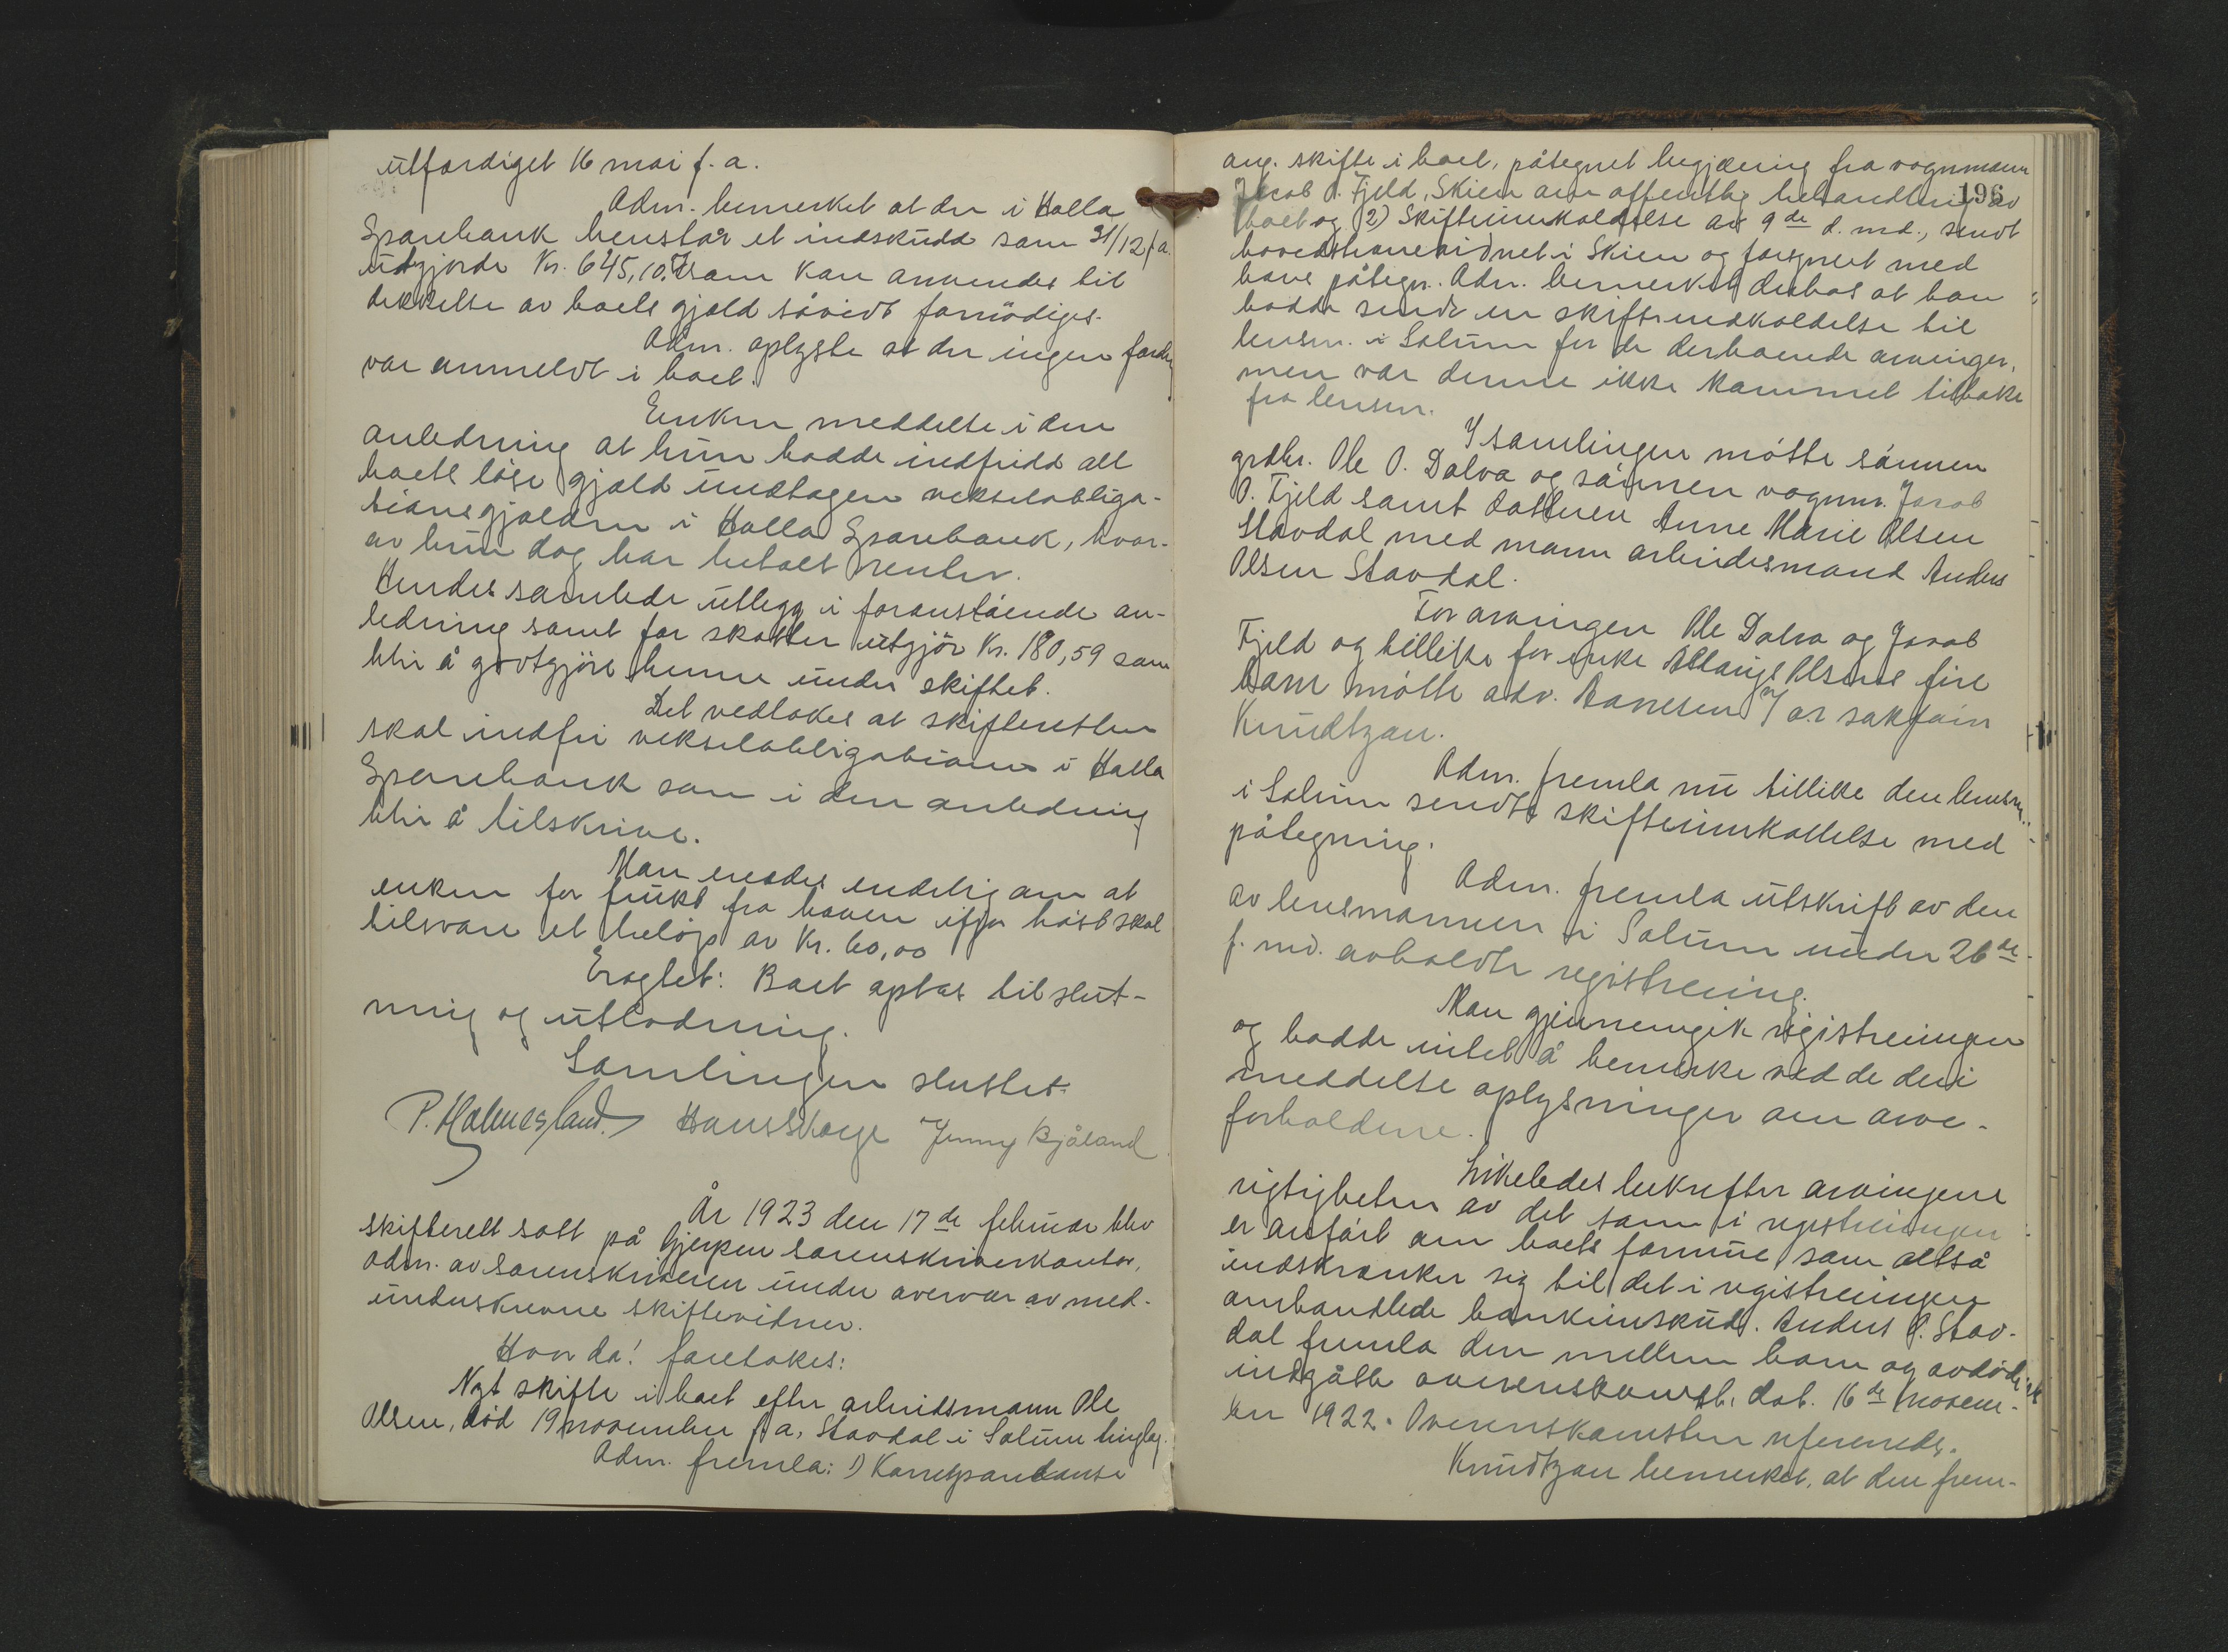 utfærdiget 16 mai f. a.
Adm. bemerket at der i Holla
Sparebank henstår et indskudd som 31/12 f. a.
utgjorde Kr. 645,10, som kan anvendes til
dekkelse av boets gjæld såvidt fornödiges.
Adm. oplyste at der ingen fordr.
var anmeldt i boet.
Enken meddelte i den
anledning at hun hadde indfridd all
boets löse gjæld undtagen vekselobliga-
tionsgjælden i Holla Sparebank, hvor-
av hun dog har betalt renter.
Hendes samlede utlegg i foranstående an-
ledning samt for skatter utgjör Kr. 180,59 som
blir å godtgjöre henne under skiftet.
Det vedtokes at skifteretten
skal indfri vekselobligationen i Holla
Sparebank som i den anledning
blir å tilskrive.
Man enedes endelig om at
enken for frukt fra haven ifjor höst skal
tilsvare et belöp av Kr. 60,00
Eragtet: Boet optas til slut-
ning og utlodning.
Samlingen sluttet.
P. Holmesland. Hans Skage Jenny Bjåland
År 1923 den 17de februar blev
skifterett satt på Gjerpen sorenskriverkontor,
adm. av sorenskriveren under overvær av med-
underskrevne skiftevidner.
Hvor da! foretokes:
Nyt skifte i boet efter arbeidsmann Ole
Olsen, död 19 november f. a., Stavdal i Solum tinglag.
Adm. fremla: 1) Korrespondanse
196
ang. skifte i boet, påtegnet begjæring fra vognmann
Jacob O. Fjeld, Skien om offentlig behandling av
boet og 2) Skifteinnkaldelse av 9de d. md., sendt
hovedstevnevidnet i Skien og forsynet med
hans påtegn. Adm. bemerket derhos at han
hadde sendt en skifteindkaldelse til
lensm. i Solum for de derboende arvinger,
men var denne ikke kommet tilbake
fra lensm.
I samlingen mötte sönnen
grdbr. Ole O. Dalva og sönnen vognm. Jacob
O. Fjeld samt datteren Anne Marie Olsen
Stavdal med mann arbeidesmand Anders
Olsen Stavdal.
For arvingen Ole Dalva og Jacob
Fjeld og tillike for enke Olsens fire
barn mötte adv. Aanesen v/ o.r. sakförer
Knudtzon.
Adm. fremla nu tillike den lensm.
i Solum sendte skifteinnkallelse med
påtegning.
Adm. fremla utskrift av den
av lensmannen i Solum under 26de
f. md. avholdte registrering.
Man gjennemgik registreringen
og hadde intet å bemerke ved de deri
meddelte oplysninger om arve-
forholdene.
Likeledes bekrefter arvingene
rigtigheten av det som i registreringen
er anfört om boets formue, som altså
indskrenker sig til det i registreringen
omhandlede bankinnskud. Anders O. Stav-
dal fremla den mellem ham og avdöde
indgåtte overenskomst, dat. 16de novem-
ber 1922. Overenskomsten refereredes.
Knudtzon bemerket, at den frem-